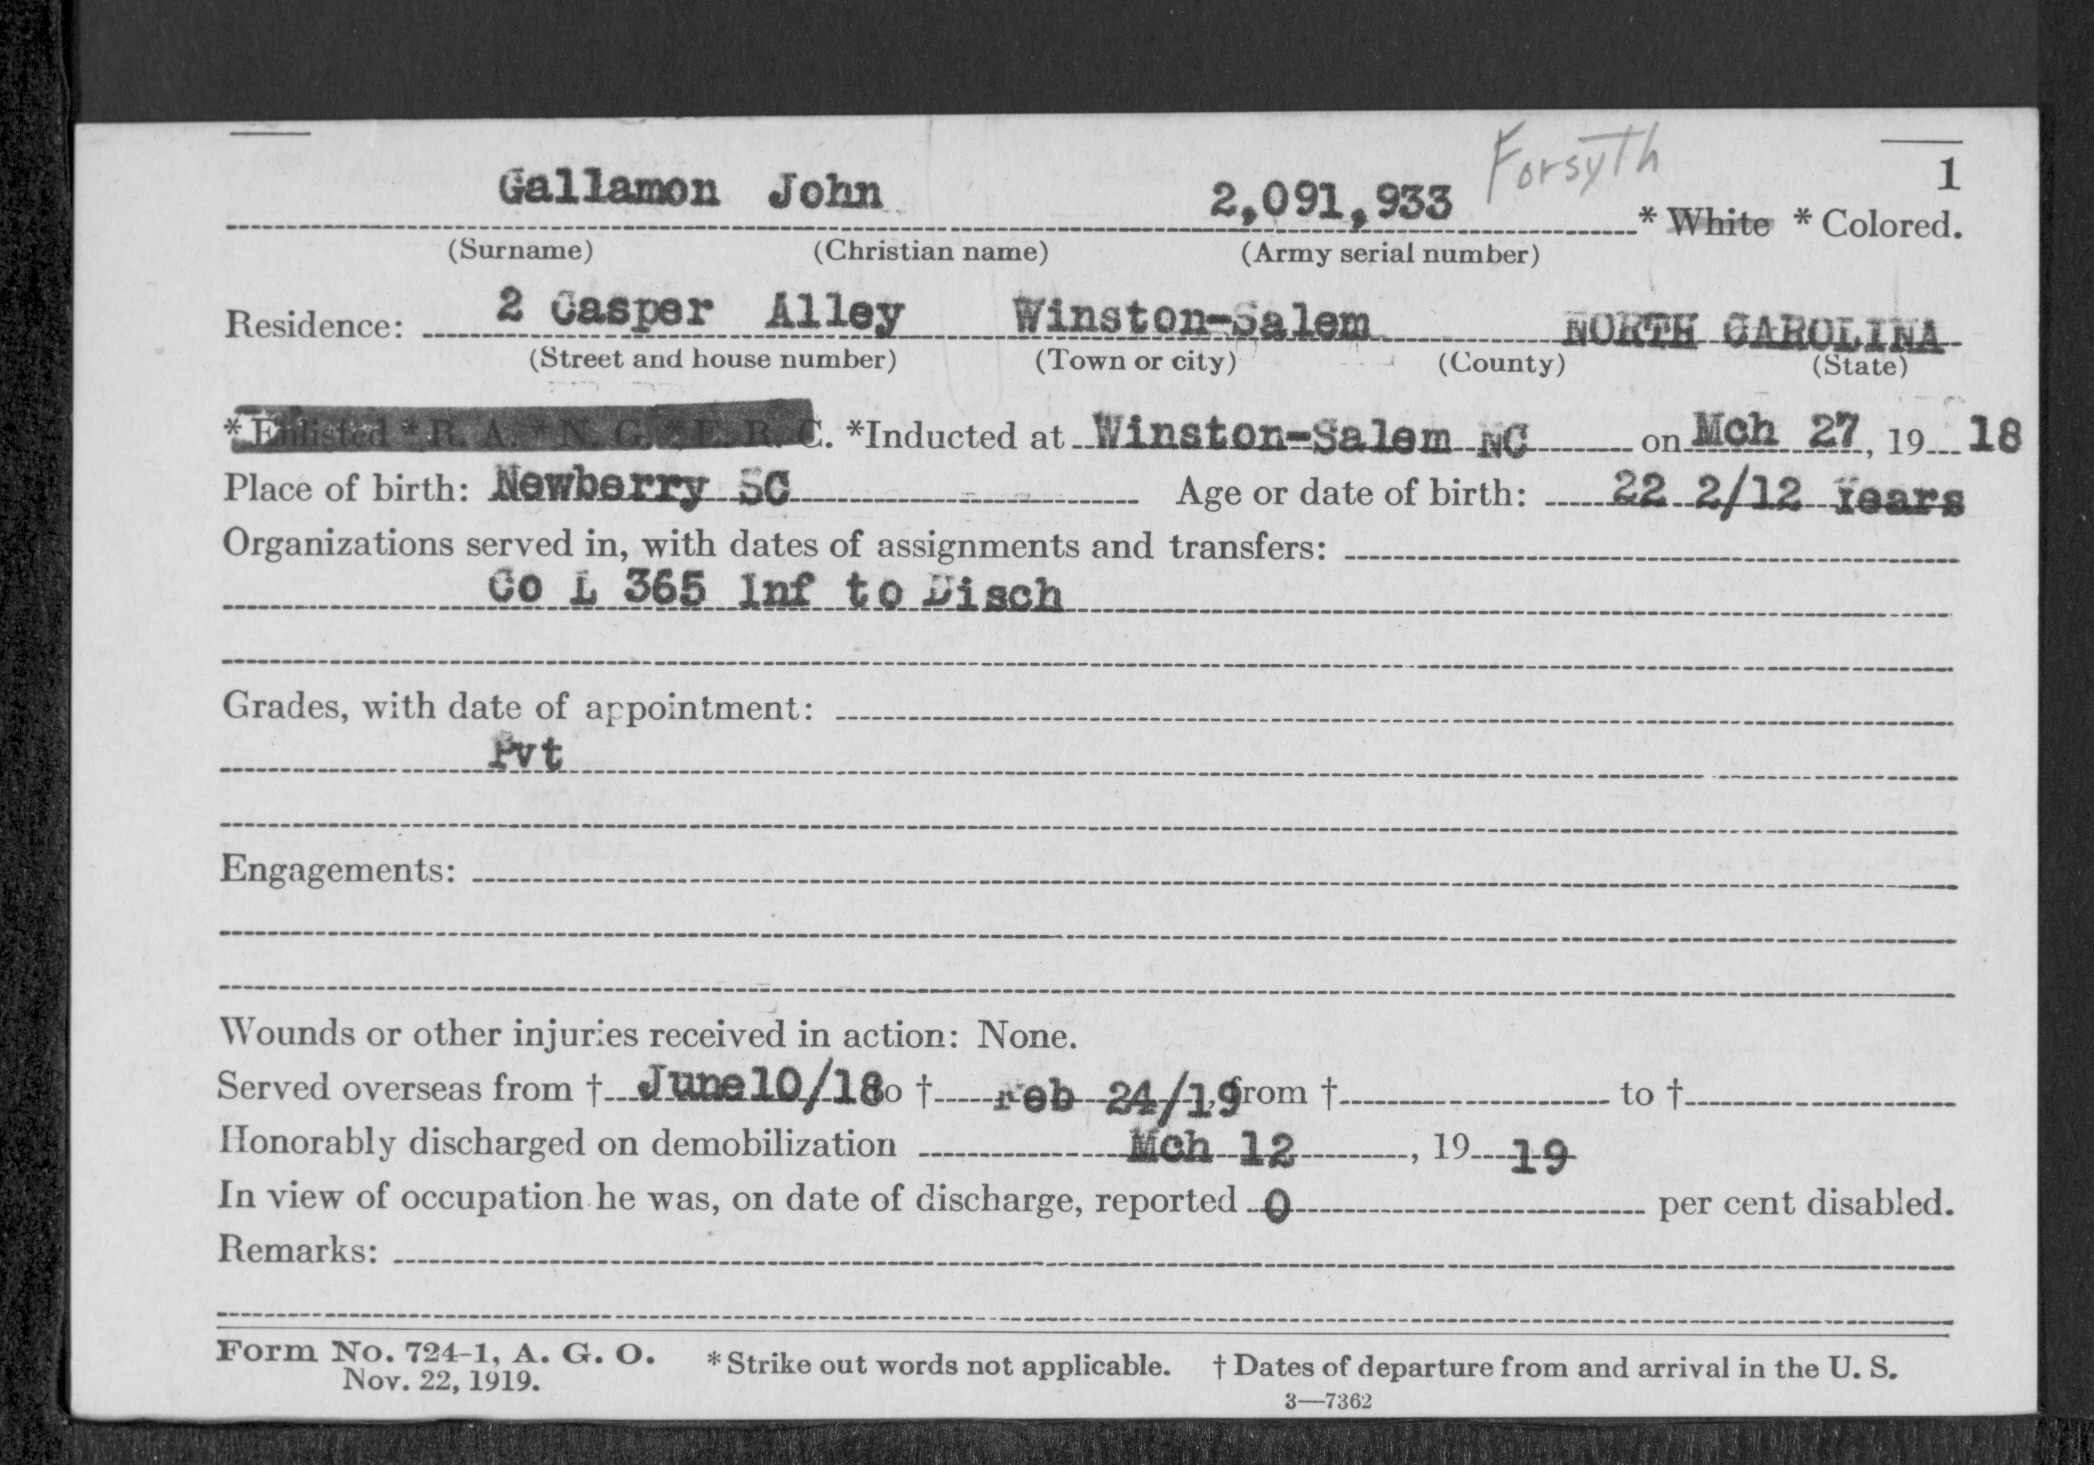 Forsyth
1
Gallamon John 2,091,933 * White * Colored.
(Surname) (Christian name) (Army serial number)
Residence: 2 Casper Alley Winston-Salem NORTH CAROLINA
(Street and house number) (Town or city) (County) (State)
* Enlisted * R. A. * N. G. * E. R. C. *Inducted at Winston-Salem NC on Mch 27, 19 18
Place of birth: Newberry SC Age or date of birth: 22 2/12 Years
Organizations served in, with dates of assignments and transfers:
Co L 365 Inf to Disch
Grades, with date of appointment:
Pvt
Engagements:
Wounds or other injuries received in action: None.
Served overseas from † June10/18 to † Feb 24/19, from † to †
Honorably discharged on demobilization Mch 12, 19 19
In view of occupation he was, on date of discharge, reported 0 per cent disabled.
Remarks:
Form No. 724-1, A. G. O. * Strike out words not applicable. † Dates of departure from and arrival in the U. S.
Nov. 22, 1919.
3—7362